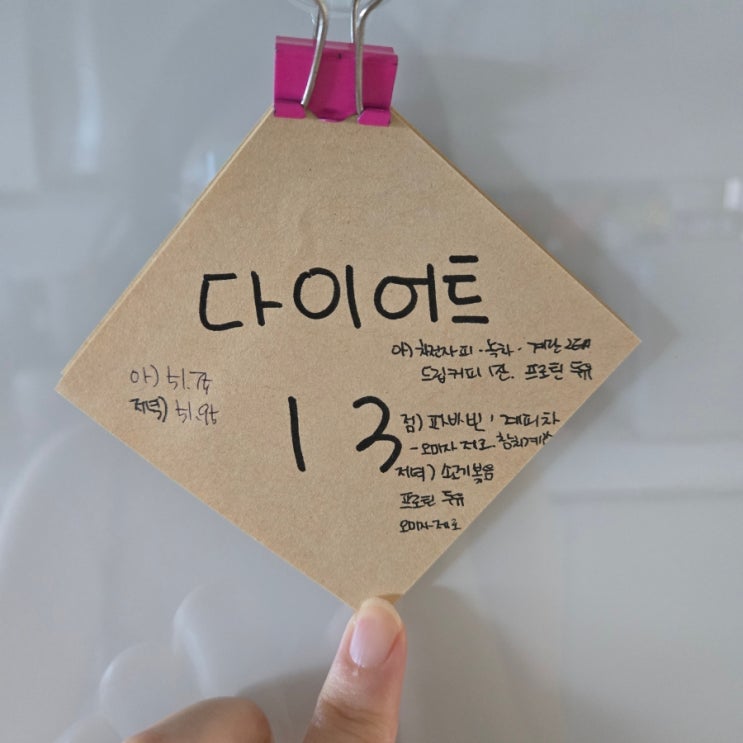 다이어트
13
아) 51.75
저녁) 51.95
아) 차전자피 · 녹차 · 계란 2개
드립커피 1잔. 프로틴 두유
점) 파바빈, 커피차
- 오미자 제로.
저녁) 소고기볶음
프로틴 두유
오미자제로